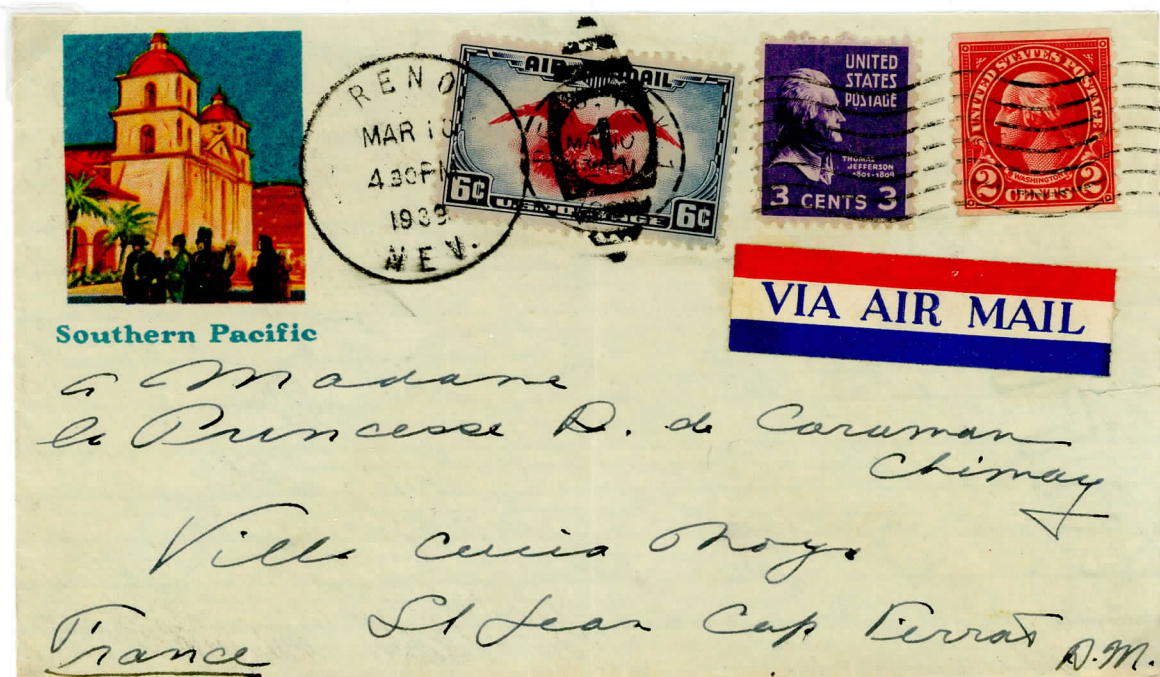 RENO
MAR 10
4 30 PM
1939
NEV.
AIR MAIL
6¢ 6¢
U.S. POSTAGE
1
MAR 10
UNITED
STATES
POSTAGE
THOMAS
JEFFERSON
1801-1809
3 CENTS 3
UNITED STATES POSTAGE
WASHINGTON
2 CENTS 2
VIA AIR MAIL
Southern Pacific
à Madame
la Princesse D. de Caraman
Chimay
Villa
St Jean Cap Ferrat
A.M.
France